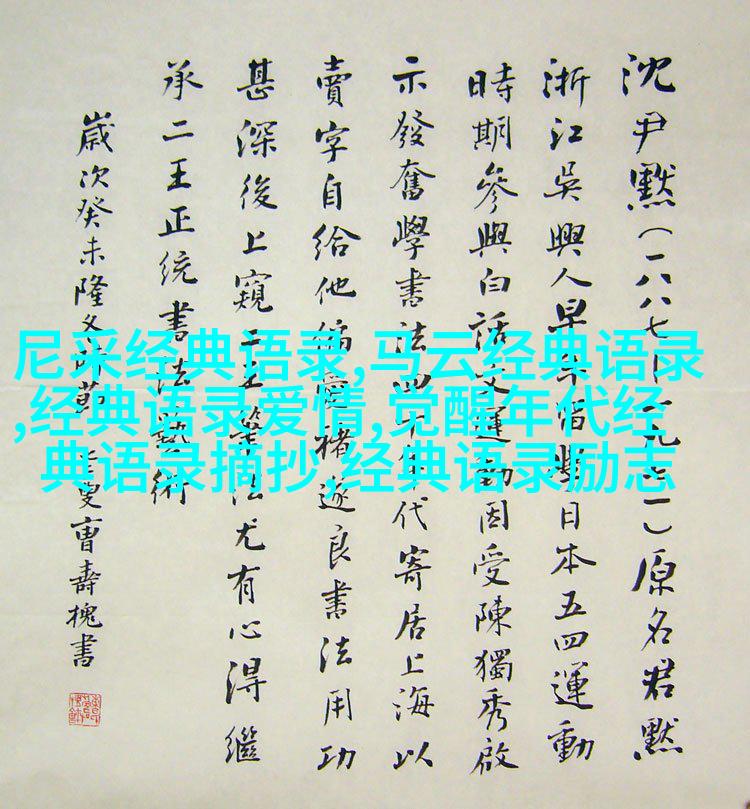 沈尹默(一八八七—一九七一)原名君默
浙江吳興人早年留學日本五四運動
時期參與白話文運動因受陳獨秀啟
示發奮學書法四十年代寄居上海以
賣字自給他偏愛褚遂良書法用功
甚深後上窺二王筆法尤有心得繼
承二王正统書法藝術
歲次癸未隆冬叟曹壽槐書
尼采经典语录,马云经典语录
,经典语录爱情,觉醒年代经
典语录摘抄,经典语录励志